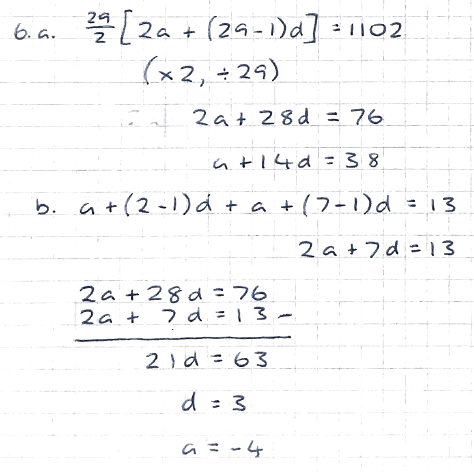 6. a. 29/2 [2a + (29-1)d] = 1102
(×2, ÷29)
2a + 28d = 76
a + 14d = 38
b. a + (2-1)d + a + (7-1)d = 13
2a + 7d = 13
2a + 28d = 76
2a + 7d = 13 -
21d = 63
d = 3
a = -4